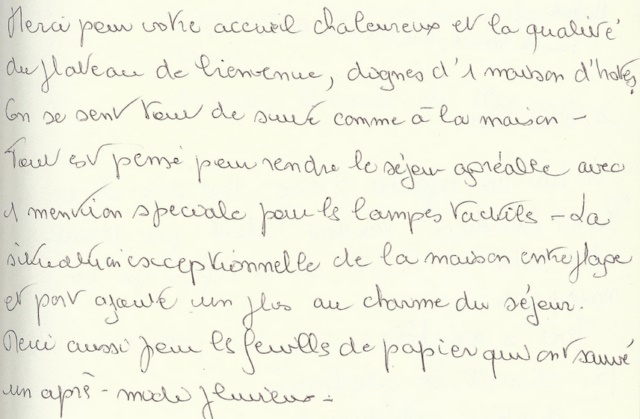 Merci pour votre accueil chaleureux et la qualité
du plateau de bienvenue, dignes d'1 maison d'hôtes
On se sent tout de suite comme à la maison -
Tout est pensé pour rendre le séjour agréable avec
1 mention spéciale pour les lampes tactiles - La
situation exceptionnelle de la maison entre plage
et port ajoute un plus au charme du séjour.
Merci aussi pour les feuilles de papier qui ont sauvé
un après-midi pluvieux -